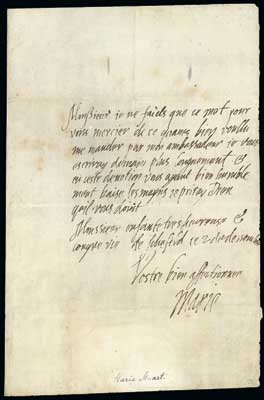 Monsieur ie ne faicts que ce mot pour
vous mercier de ce
me mander par mon ambassadeur ie vous
escriray demain plus longuement &
en ceste devotion vous bien humble
ment baise les mayns ie priray Dieu
quil vous doint
Monsieur tres heureuse &
longue vie de ce 2 de
Vostre bien affectionnee
Marie
Marie Stuart.